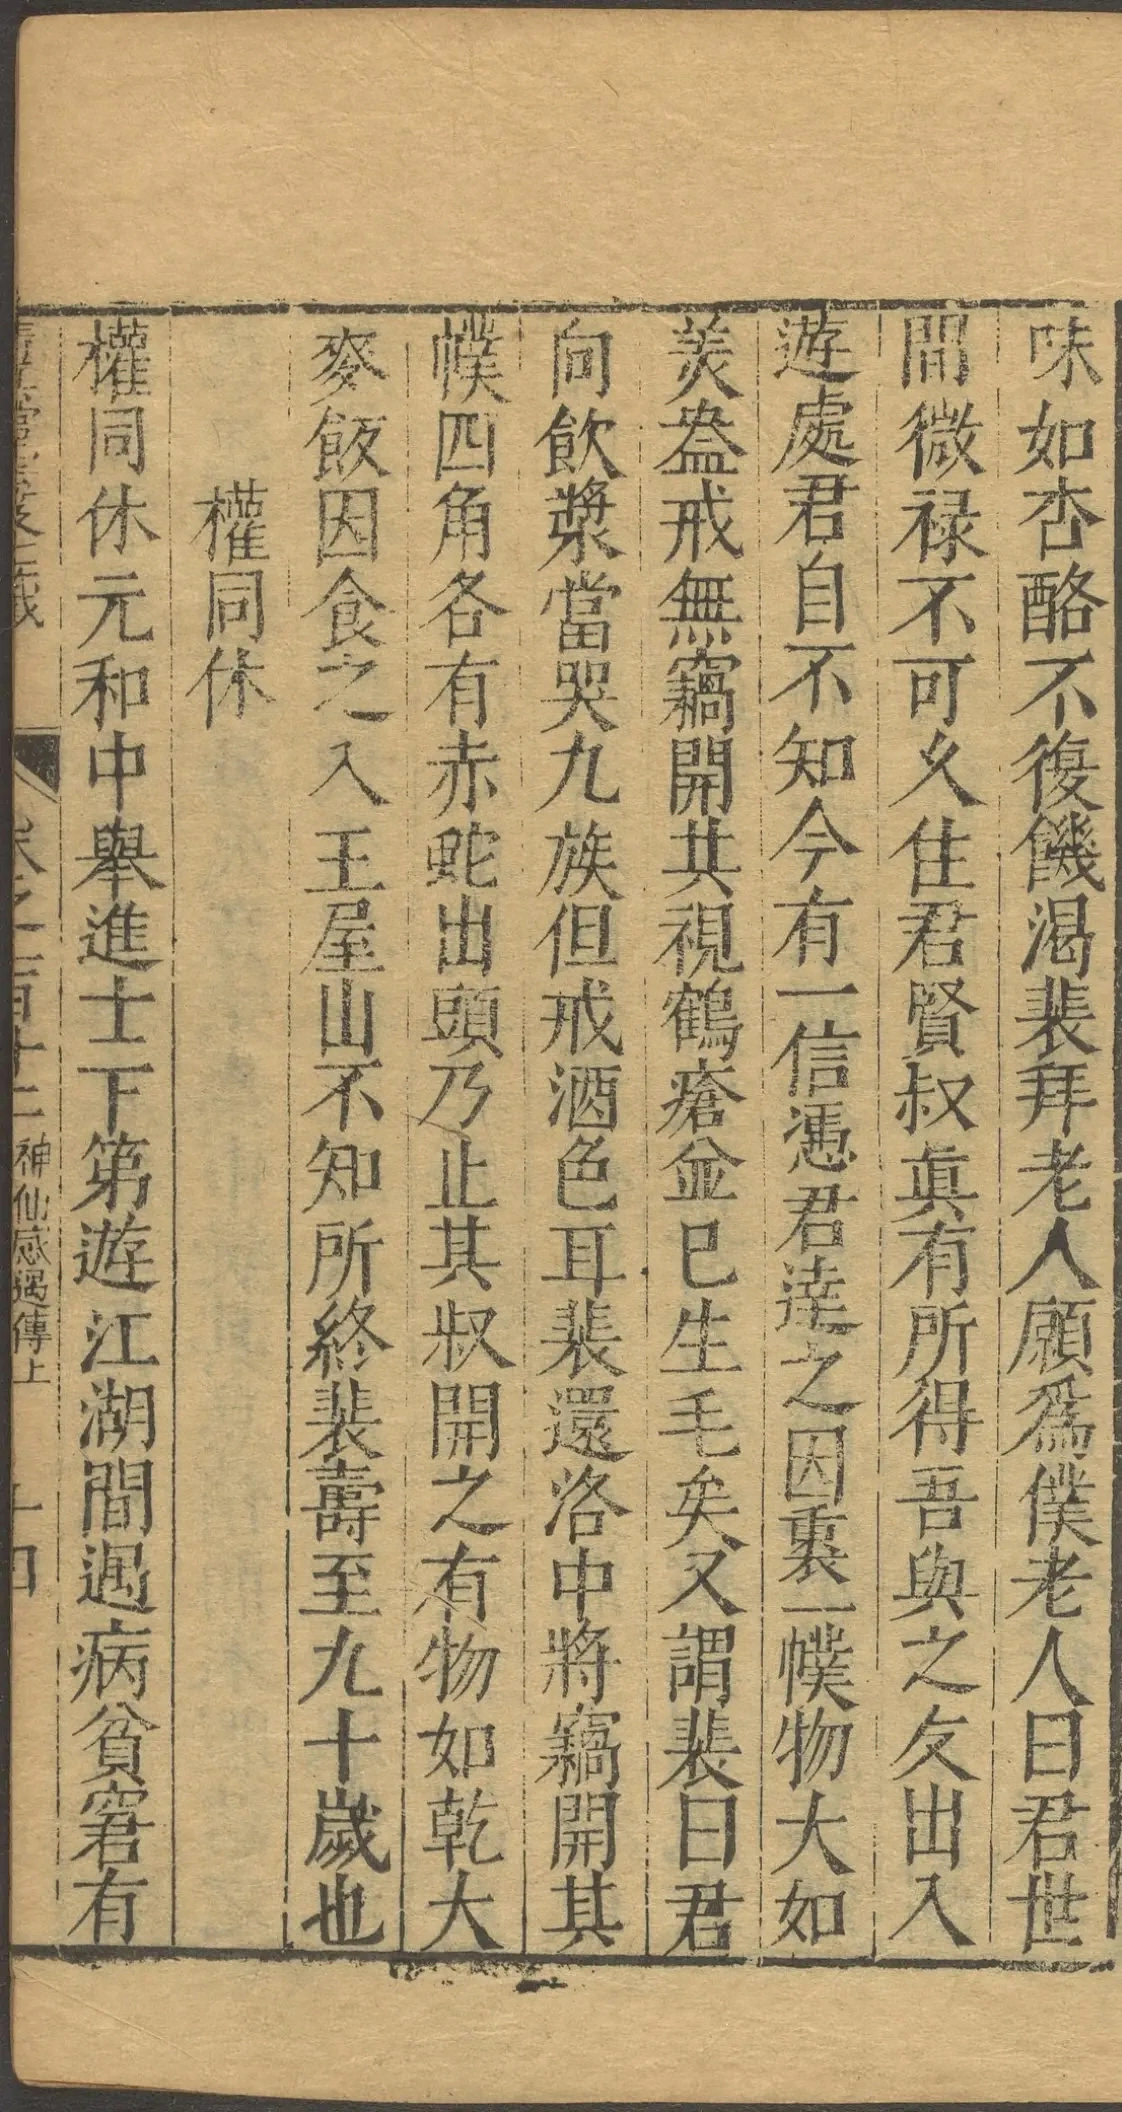 味如杏酪不復饑渴裴拜老人願爲僕老人曰君世
間微祿不可久住君賢叔眞有所得吾與之友出入
遊處君自不知今有一信憑君達之因裹一幞物大如
羹盎戒無竊開共視鶴瘡並已生毛矣又謂裴曰君
向飲漿當哭九族但戒酒色耳裴還洛中將竊開其
幞四角各有赤蛇出頭乃止其叔開之有物如乾大
麥飯因食之入王屋山不知所終裴壽至九十歲也
權同休
權同休元和中舉進士下第遊江湖間遇病貧窘有
卷之一百十二 神仙感遇傳上 十四